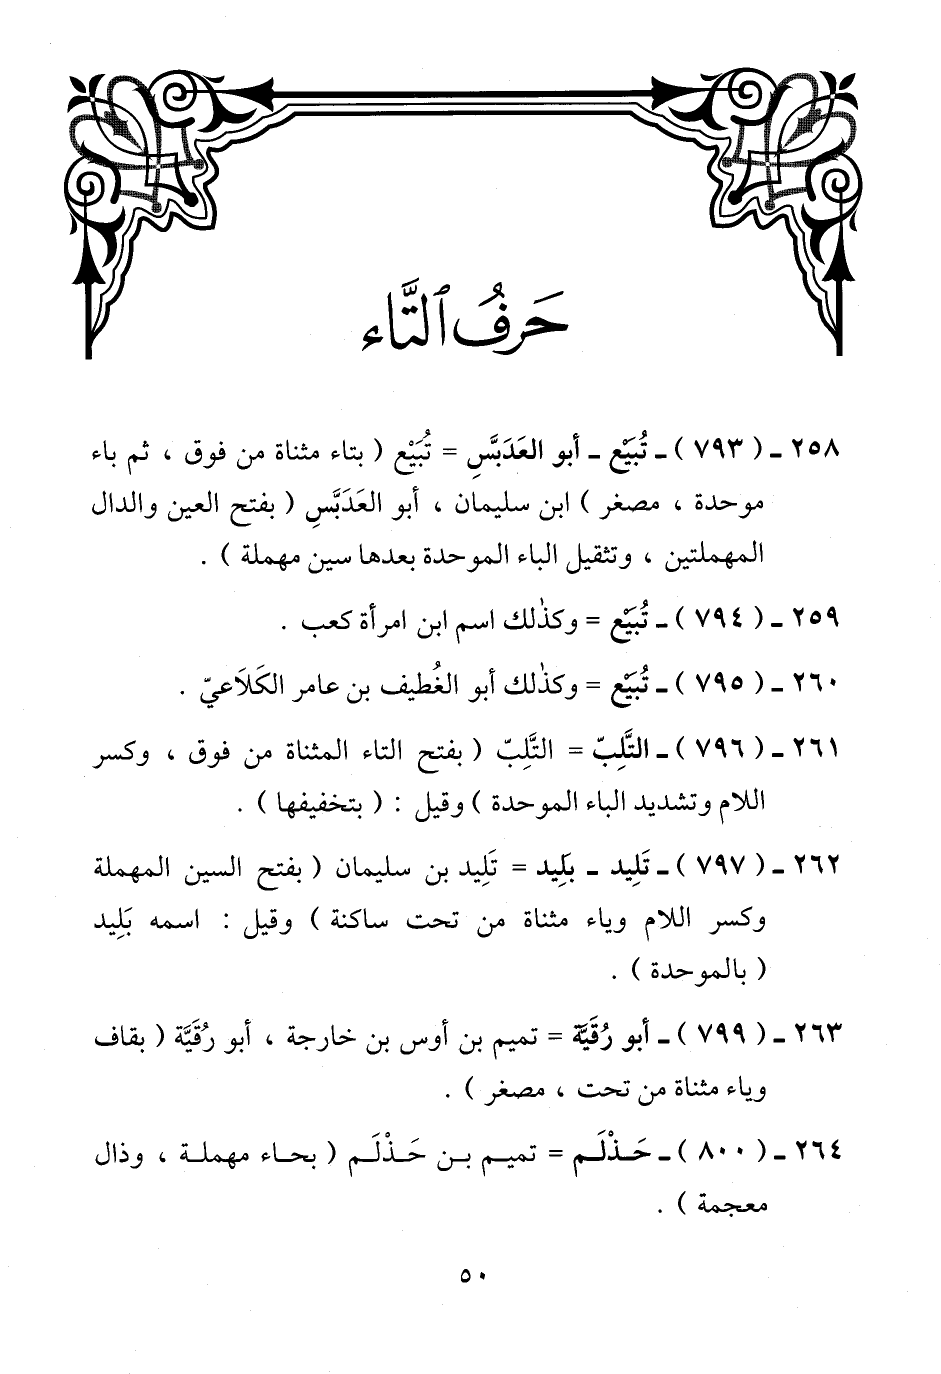 حَرفُ ٱلتَّاء
٢٥٨ ـ ( ٧٩٣ ) ـ تُبَيْع ـ أبو العَدَبَّسِ = تُبَيْع ( بتاء مثناة من فوق ، ثم باء
موحدة ، مصغر ) ابن سليمان ، أبو العَدَبَّسِ ( بفتح العين والدال
المهملتين ، وتثقيل الباء الموحدة بعدها سين مهملة ) .
٢٥٩ ـ ( ٧٩٤ ) ـ تُبَيْع = وكذٰلك اسم ابن امرأة كعب .
٢٦٠ ـ ( ٧٩٥ ) ـ تُبَيْع = وكذٰلك أبو الغُطيف بن عامر الكَلَاعيّ .
٢٦١ ـ ( ٧٩٦ ) ـ التَّلِبّ = التَّلِبّ ( بفتح التاء المثناة من فوق ، وكسر
اللام وتشديد الباء الموحدة ) وقيل : ( بتخفيفها ) .
٢٦٢ ـ ( ٧٩٧ ) ـ تَلِيد ـ بَلِيد = تَلِيد بن سليمان ( بفتح السين المهملة
وكسر اللام وياء مثناة من تحت ساكنة ) وقيل : اسمه بَلِيد
( بالموحدة ) .
٢٦٣ ـ ( ٧٩٩ ) ـ أبو رُقَيَّة = تميم بن أوس بن خارجة ، أبو رُقَيَّة ( بقاف
وياء مثناة من تحت ، مصغر ) .
٢٦٤ ـ ( ٨٠٠ ) ـ حَـذْلَـم = تميـم بـن حَـذْلَـم ( بحـاء مهملـة ، وذال
معجمة ) .
٥٠